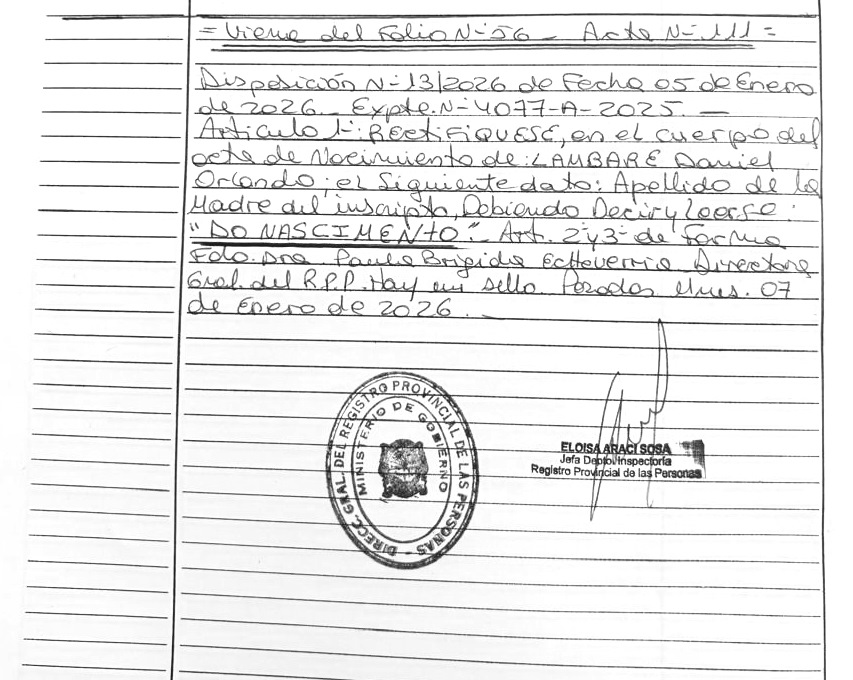 = Viene del Folio Nº 56 - Acta Nº 111 =
Disposición Nº 13/2026 de Fecha 05 de Enero
de 2026. Expte. Nº 4077-A-2025. —
Articulo 1º: RECTIFIQUESE, en el cuerpo del
acta de Nacimiento de: LAMBARE Daniel
Orlando; el Siguiente dato: Apellido de la
Madre del inscripto, Debiendo Decir y Leerse:
"DO NASCIMENTO". Art. 2º y 3º de forma
Fdo. Dra. Paula Brigida Echeverria Directora
Gral. del R.P.P. Hay un sello. Posadas Mnes. 07
de Enero de 2026. —
DIRECC. GRAL. DEL REGISTRO PROVINCIAL DE LAS PERSONAS -
MINISTERIO DE GOBIERNO
ELOISA ARACI SOSA
Jefa Depto. Inspectoría
Registro Provincial de las Personas